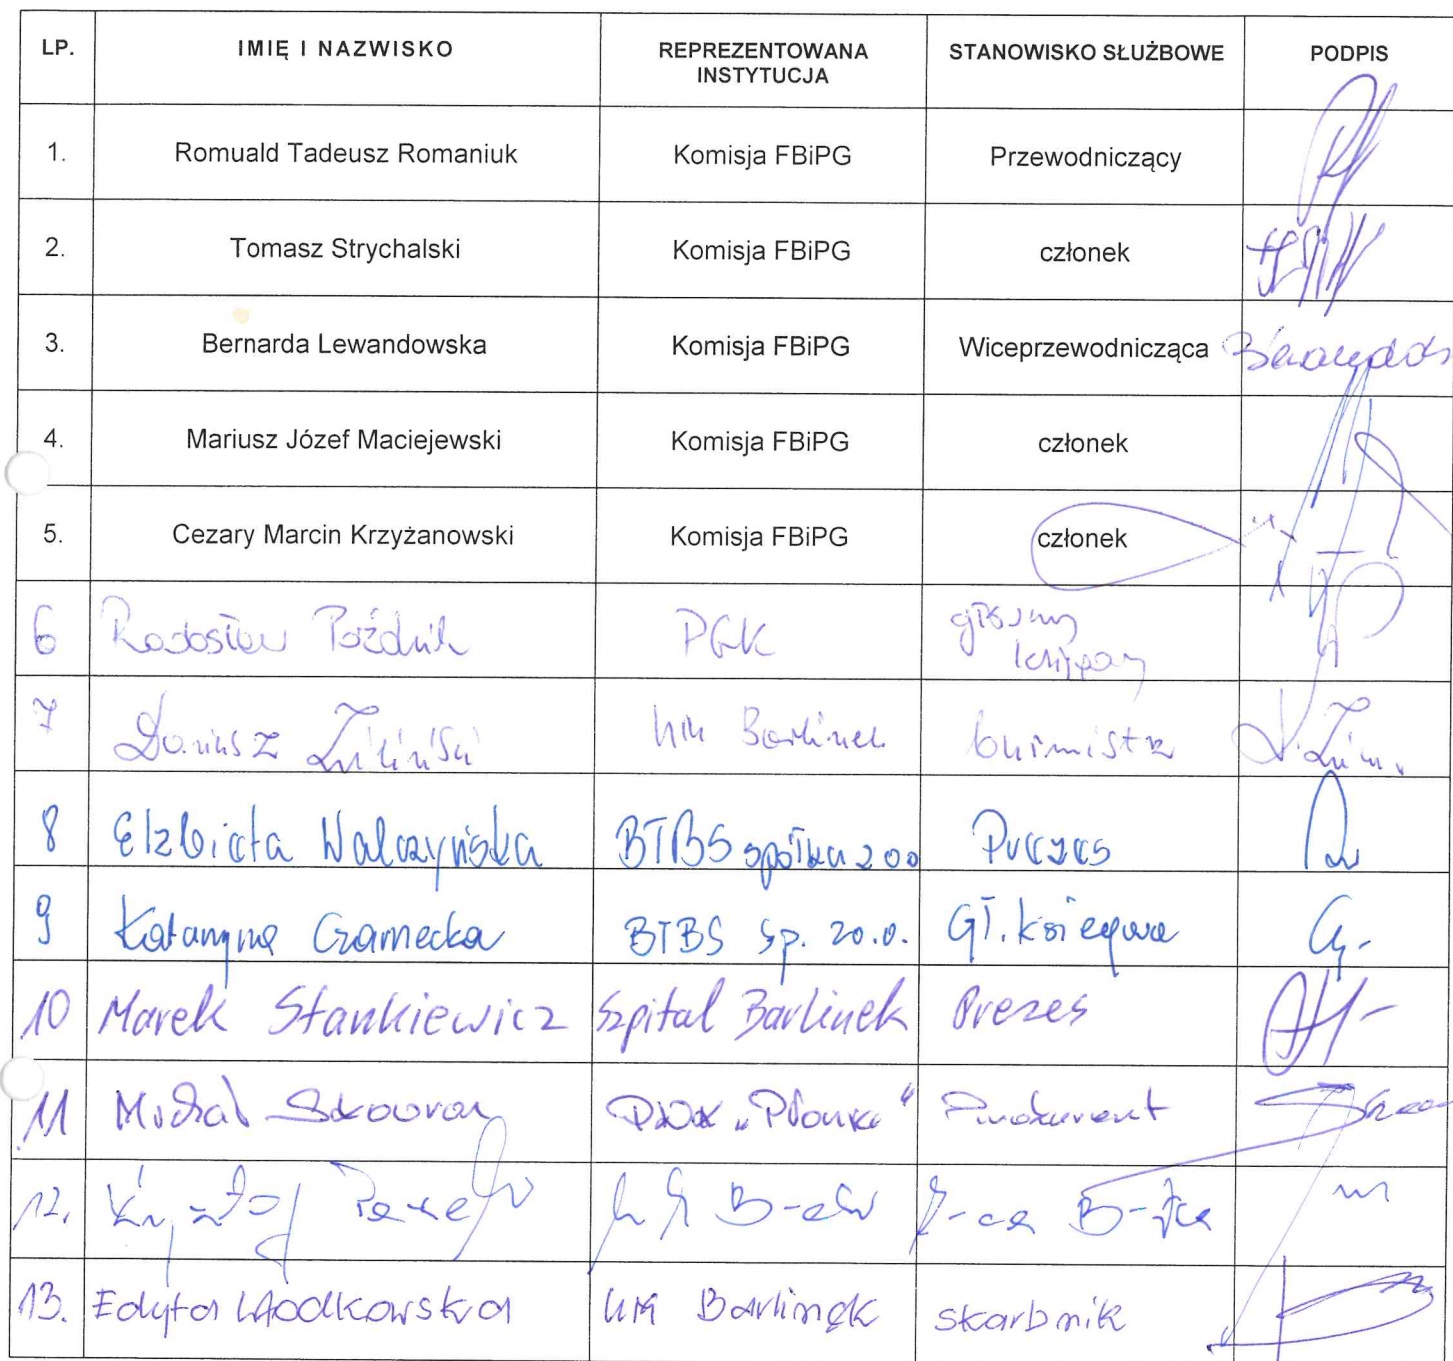 LP. IMIĘ I NAZWISKO REPREZENTOWANA INSTYTUCJA STANOWISKO SŁUŻBOWE PODPIS
1. Romuald Tadeusz Romaniuk Komisja FBiPG Przewodniczący
2. Tomasz Strychalski Komisja FBiPG członek
3. Bernarda Lewandowska Komisja FBiPG Wiceprzewodnicząca
4. Mariusz Józef Maciejewski Komisja FBiPG członek
5. Cezary Marcin Krzyżanowski Komisja FBiPG członek
6 Radosław Poździk PGK główny księgowy
7 Dariusz Zieliński UM Barlinek burmistrz
8 Elżbieta Walczyńska BTBS spółka z oo Prezes
9 Katarzyna Czarnecka BTBS sp. zo.o. Gł. księgowa
10 Marek Stankiewicz Szpital Barlinek Prezes
11 Michał Skowron "Płonka" Prokurent
12. Krzysztof
13. Edyta Włodkowska UM Barlinek skarbnik